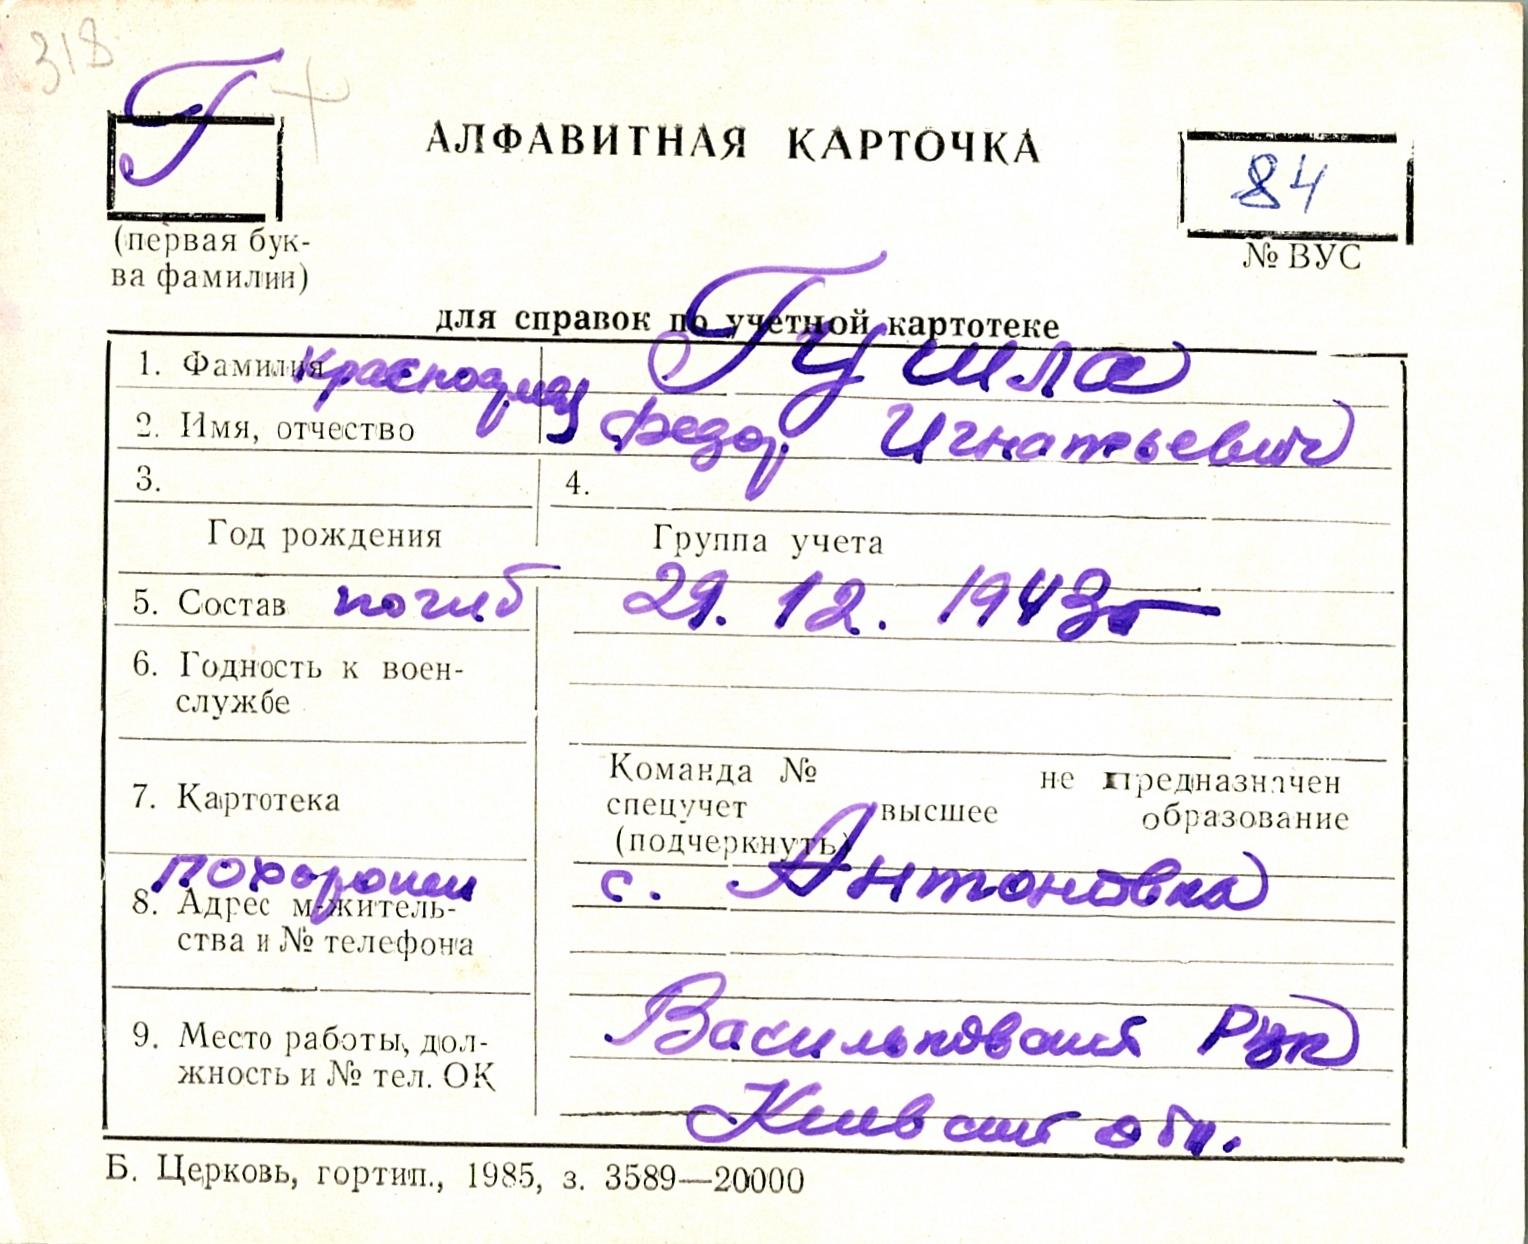 318
Г +
АЛФАВИТНАЯ КАРТОЧКА
84
(первая бук-
ва фамилии)
№ ВУС
для справок по учетной картотеке
1. Фамилия Гушла
2. Имя, отчество Федор Игнатьевич
3. 4.
Год рождения Группа учета
5. Состав погиб 29. 12. 1943г
6. Годность к воен-
службе
7. Картотека
Команда № не предназначен
спецучет высшее образование
(подчеркнуть)
похоронен с. Антоновка
8. Адрес м-житель-
ства и № телефона
Васильковский
9. Место работы, дол-
жность и № тел. ОК
Киевский обл.
Б. Церковь, гортип., 1985, з. 3589—20000